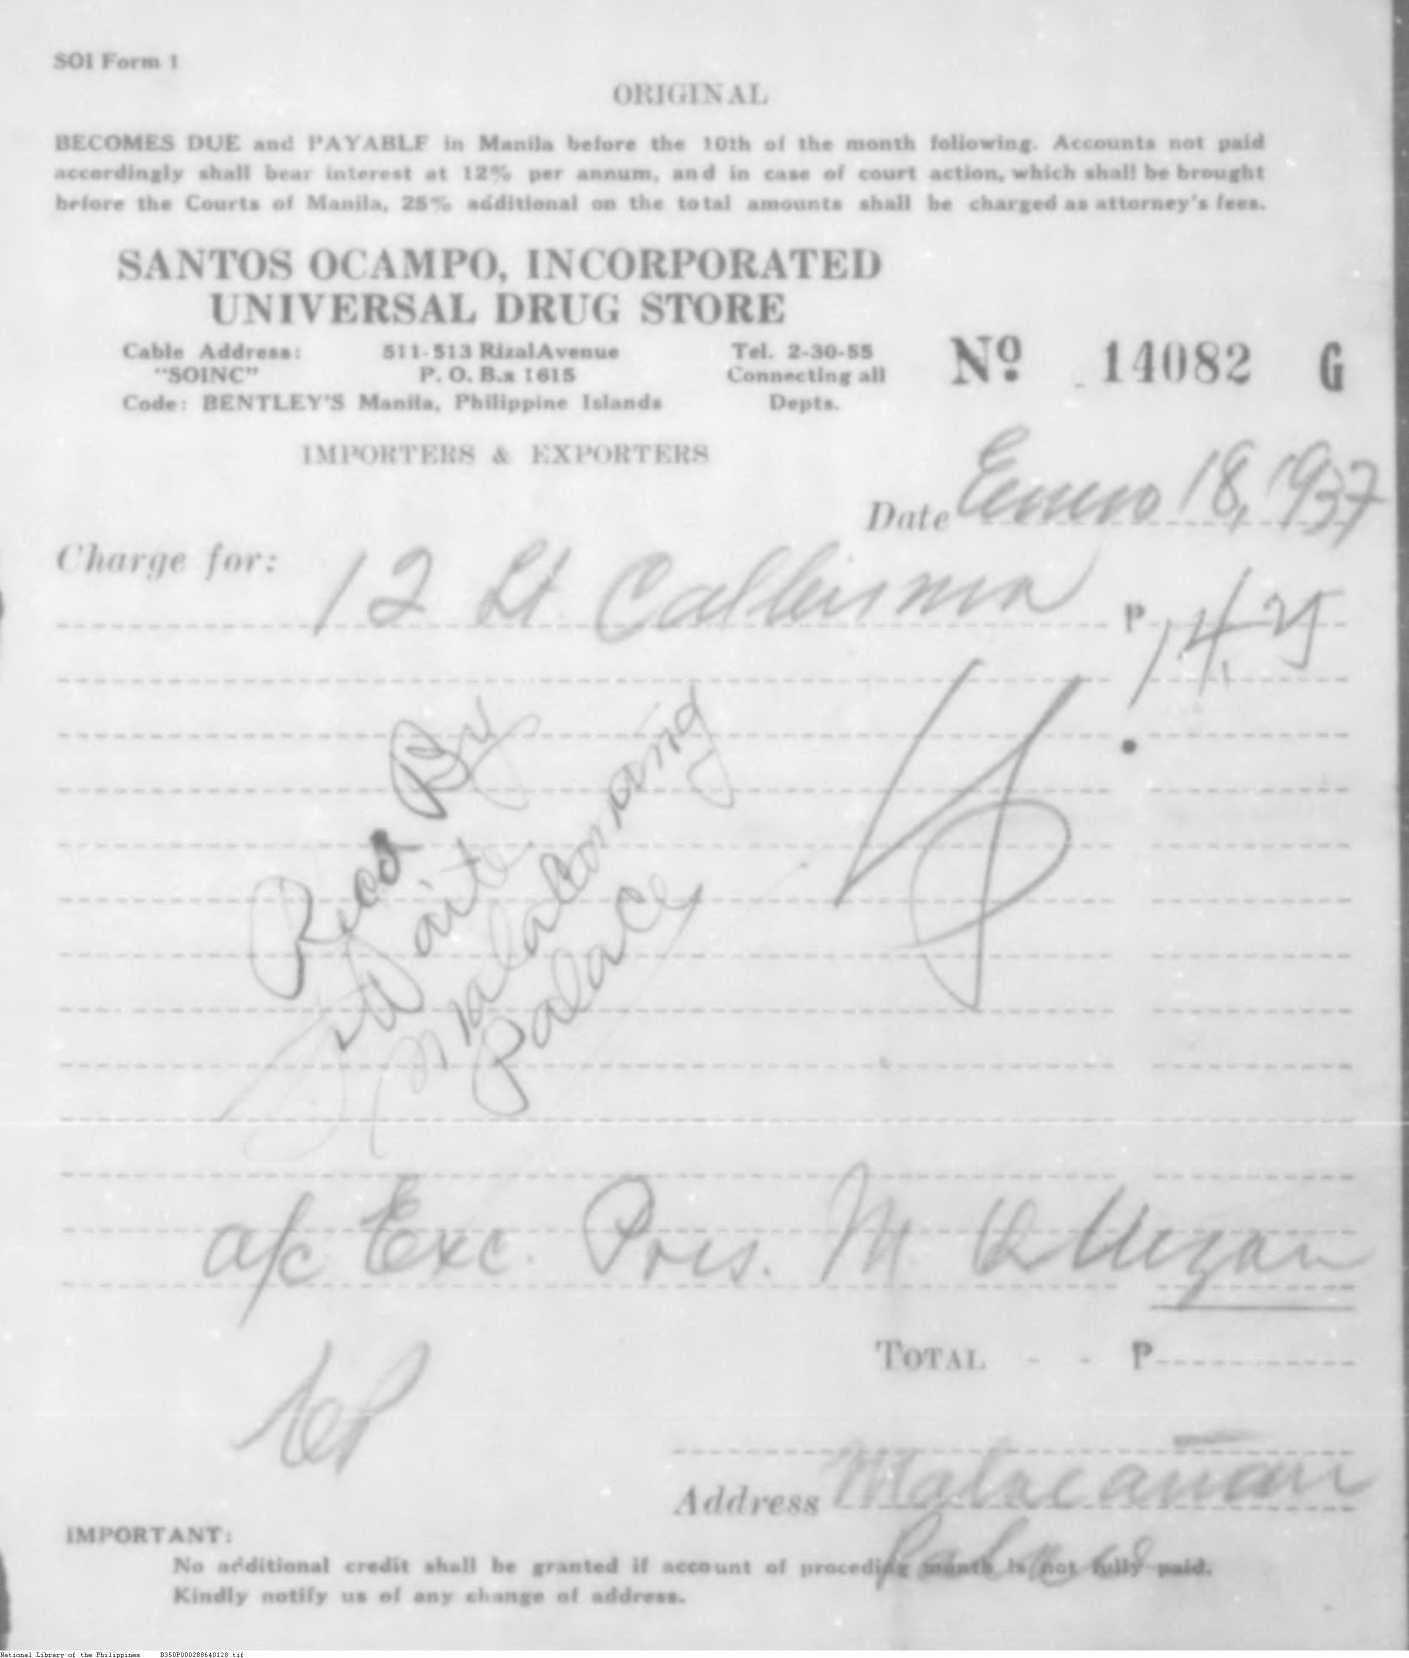 SOI Form 1
ORIGINAL
BECOMES DUE and PAYABLE in Manila before the 10th of the month following. Accounts not paid
accordingly shall bear interest at 12% per annum, and in case of court action, which shall be brought
before the Courts of Manila, 25% additional on the total amounts shall be charged as attorney's fees.
SANTOS OCAMPO, INCORPORATED
UNIVERSAL DRUG STORE
Cable Address: 511-513 Rizal Avenue Tel. 2-30-55
"SOINC" P. O. B.x 1615 Connecting all
Code: BENTLEY'S Manila, Philippine Islands Depts.
Nº 14082 G
IMPORTERS & EXPORTERS
Date Enero 18, 1937
Charge for:
12 Lt ₱ 14.25
Recd By
Malacanang
Palace
a/c Exc. Pres. M.
TOTAL - - ₱
Address Malacañan
Palace
IMPORTANT:
No additional credit shall be granted if account of proceding month is not fully paid.
Kindly notify us of any change of address.
National Library of the Philippines B350P000288640128.tif